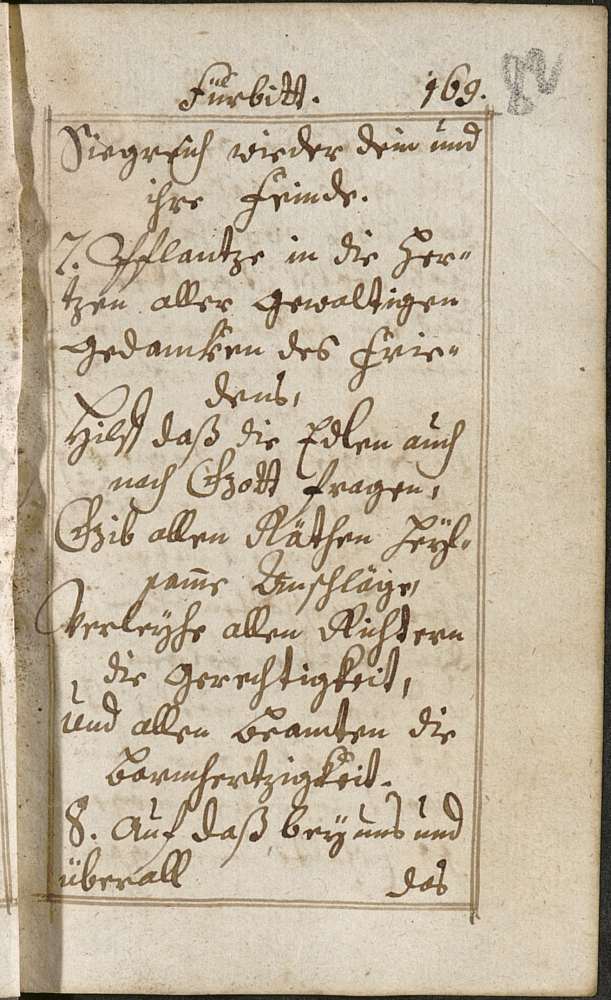 Fürbitt. 169.
Siegreich wieder dein und
ihre Feinde.
7. Pflantze in die Her-
tzen aller Gewaltigen
Gedancken des Frie-
dens,
Hilff daß die Edlen auch
nach Gott fragen,
Gib allen Räthen heyl-
same Anschläge,
Verleyhe allen Richtern
die Gerechtigkeit,
und allen Beamten die
Barmhertzigkeit.
8. Auf daß bey uns und
überall das